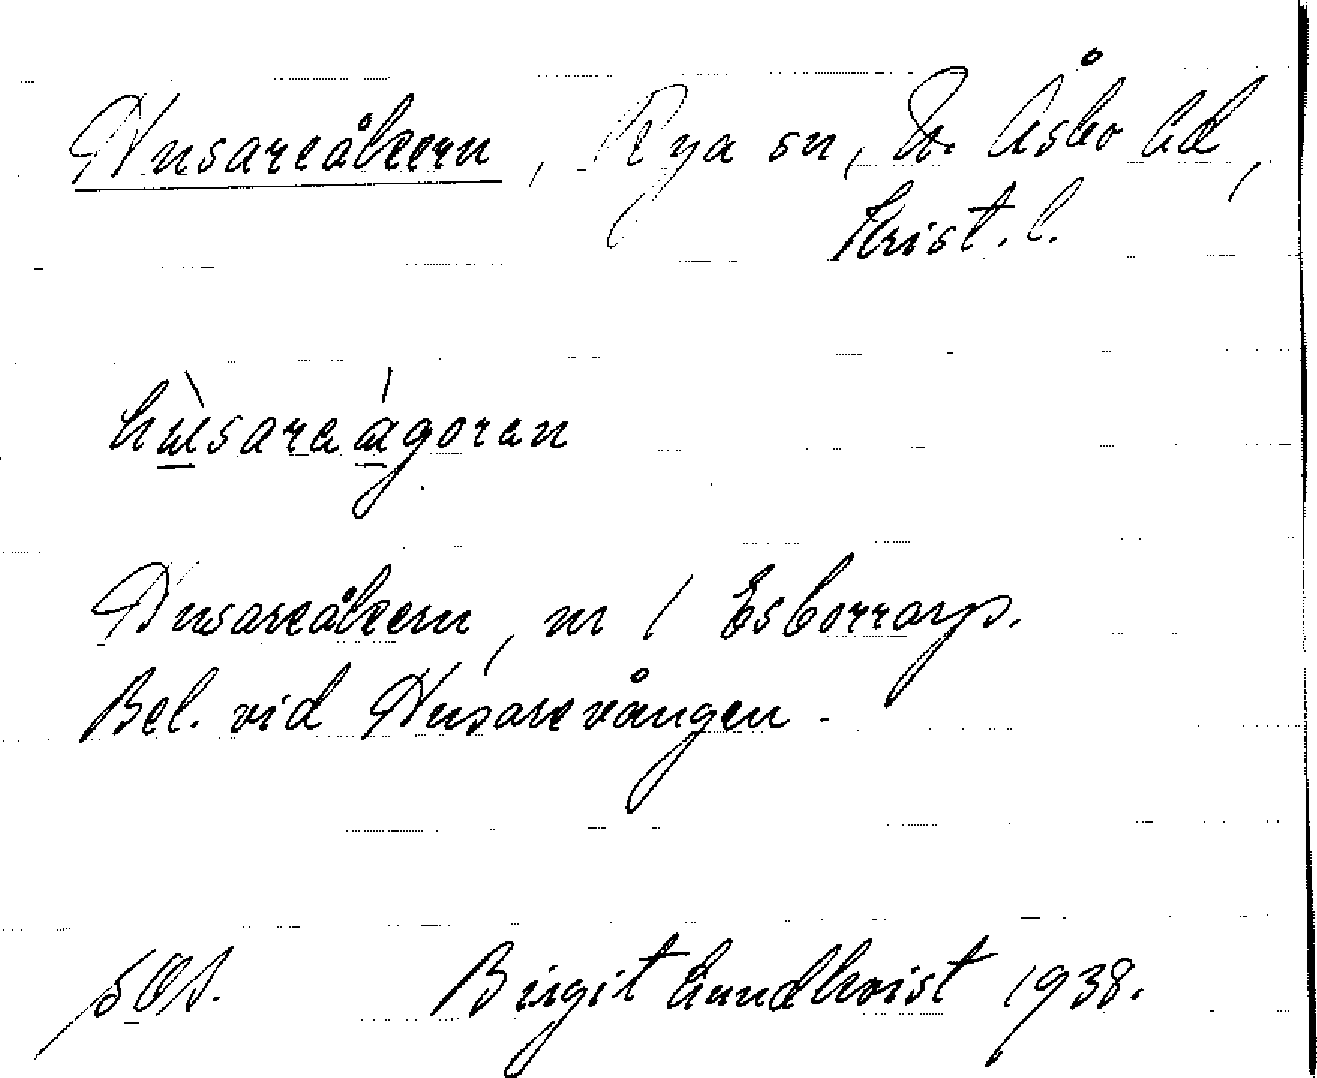 Husareåkern, Rya sn, N. Åsbo hd,
Krist. l.
hùsaraágoran
Husareåkern, nr 1 Esborrarp.
Bel. vid Husarevången.
SOA. Birgit Lundkvist 1938.